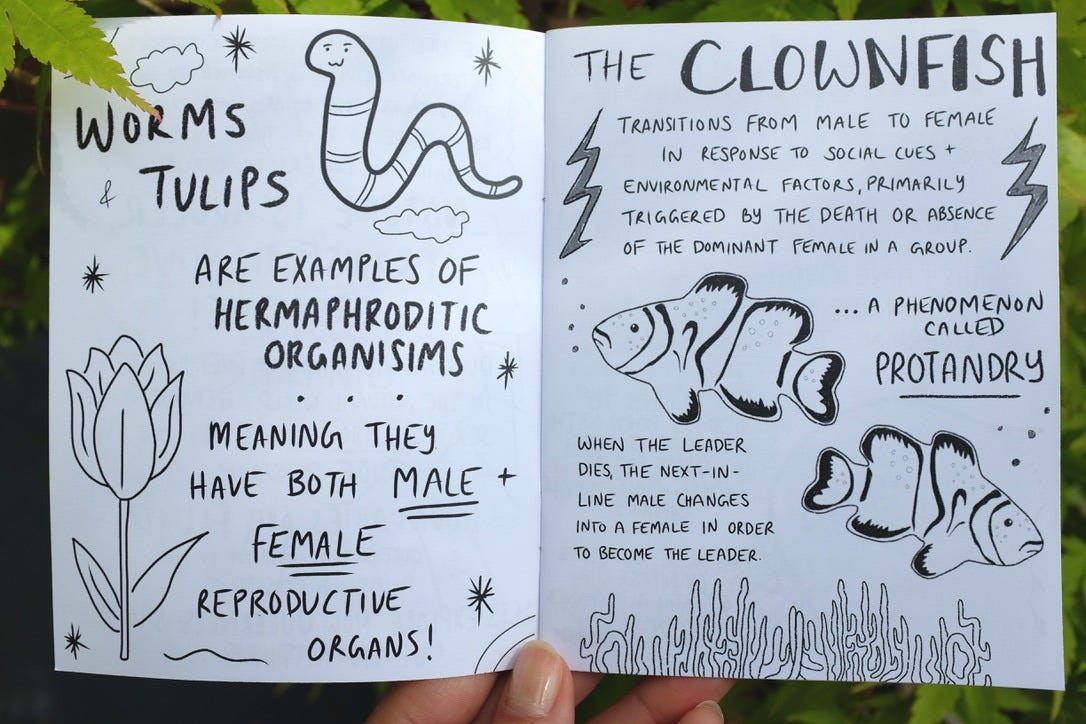 WORMS
& TULIPS
ARE EXAMPLES OF
HERMAPHRODITIC
ORGANISIMS
...
MEANING THEY
HAVE BOTH MALE +
FEMALE
REPRODUCTIVE
ORGANS!
THE CLOWNFISH
TRANSITIONS FROM MALE TO FEMALE
IN RESPONSE TO SOCIAL CUES +
ENVIRONMENTAL FACTORS, PRIMARILY
TRIGGERED BY THE DEATH OR ABSENCE
OF THE DOMINANT FEMALE IN A GROUP.
... A PHENOMENON
CALLED
PROTANDRY
WHEN THE LEADER
DIES, THE NEXT-IN-
LINE MALE CHANGES
INTO A FEMALE IN ORDER
TO BECOME THE LEADER.